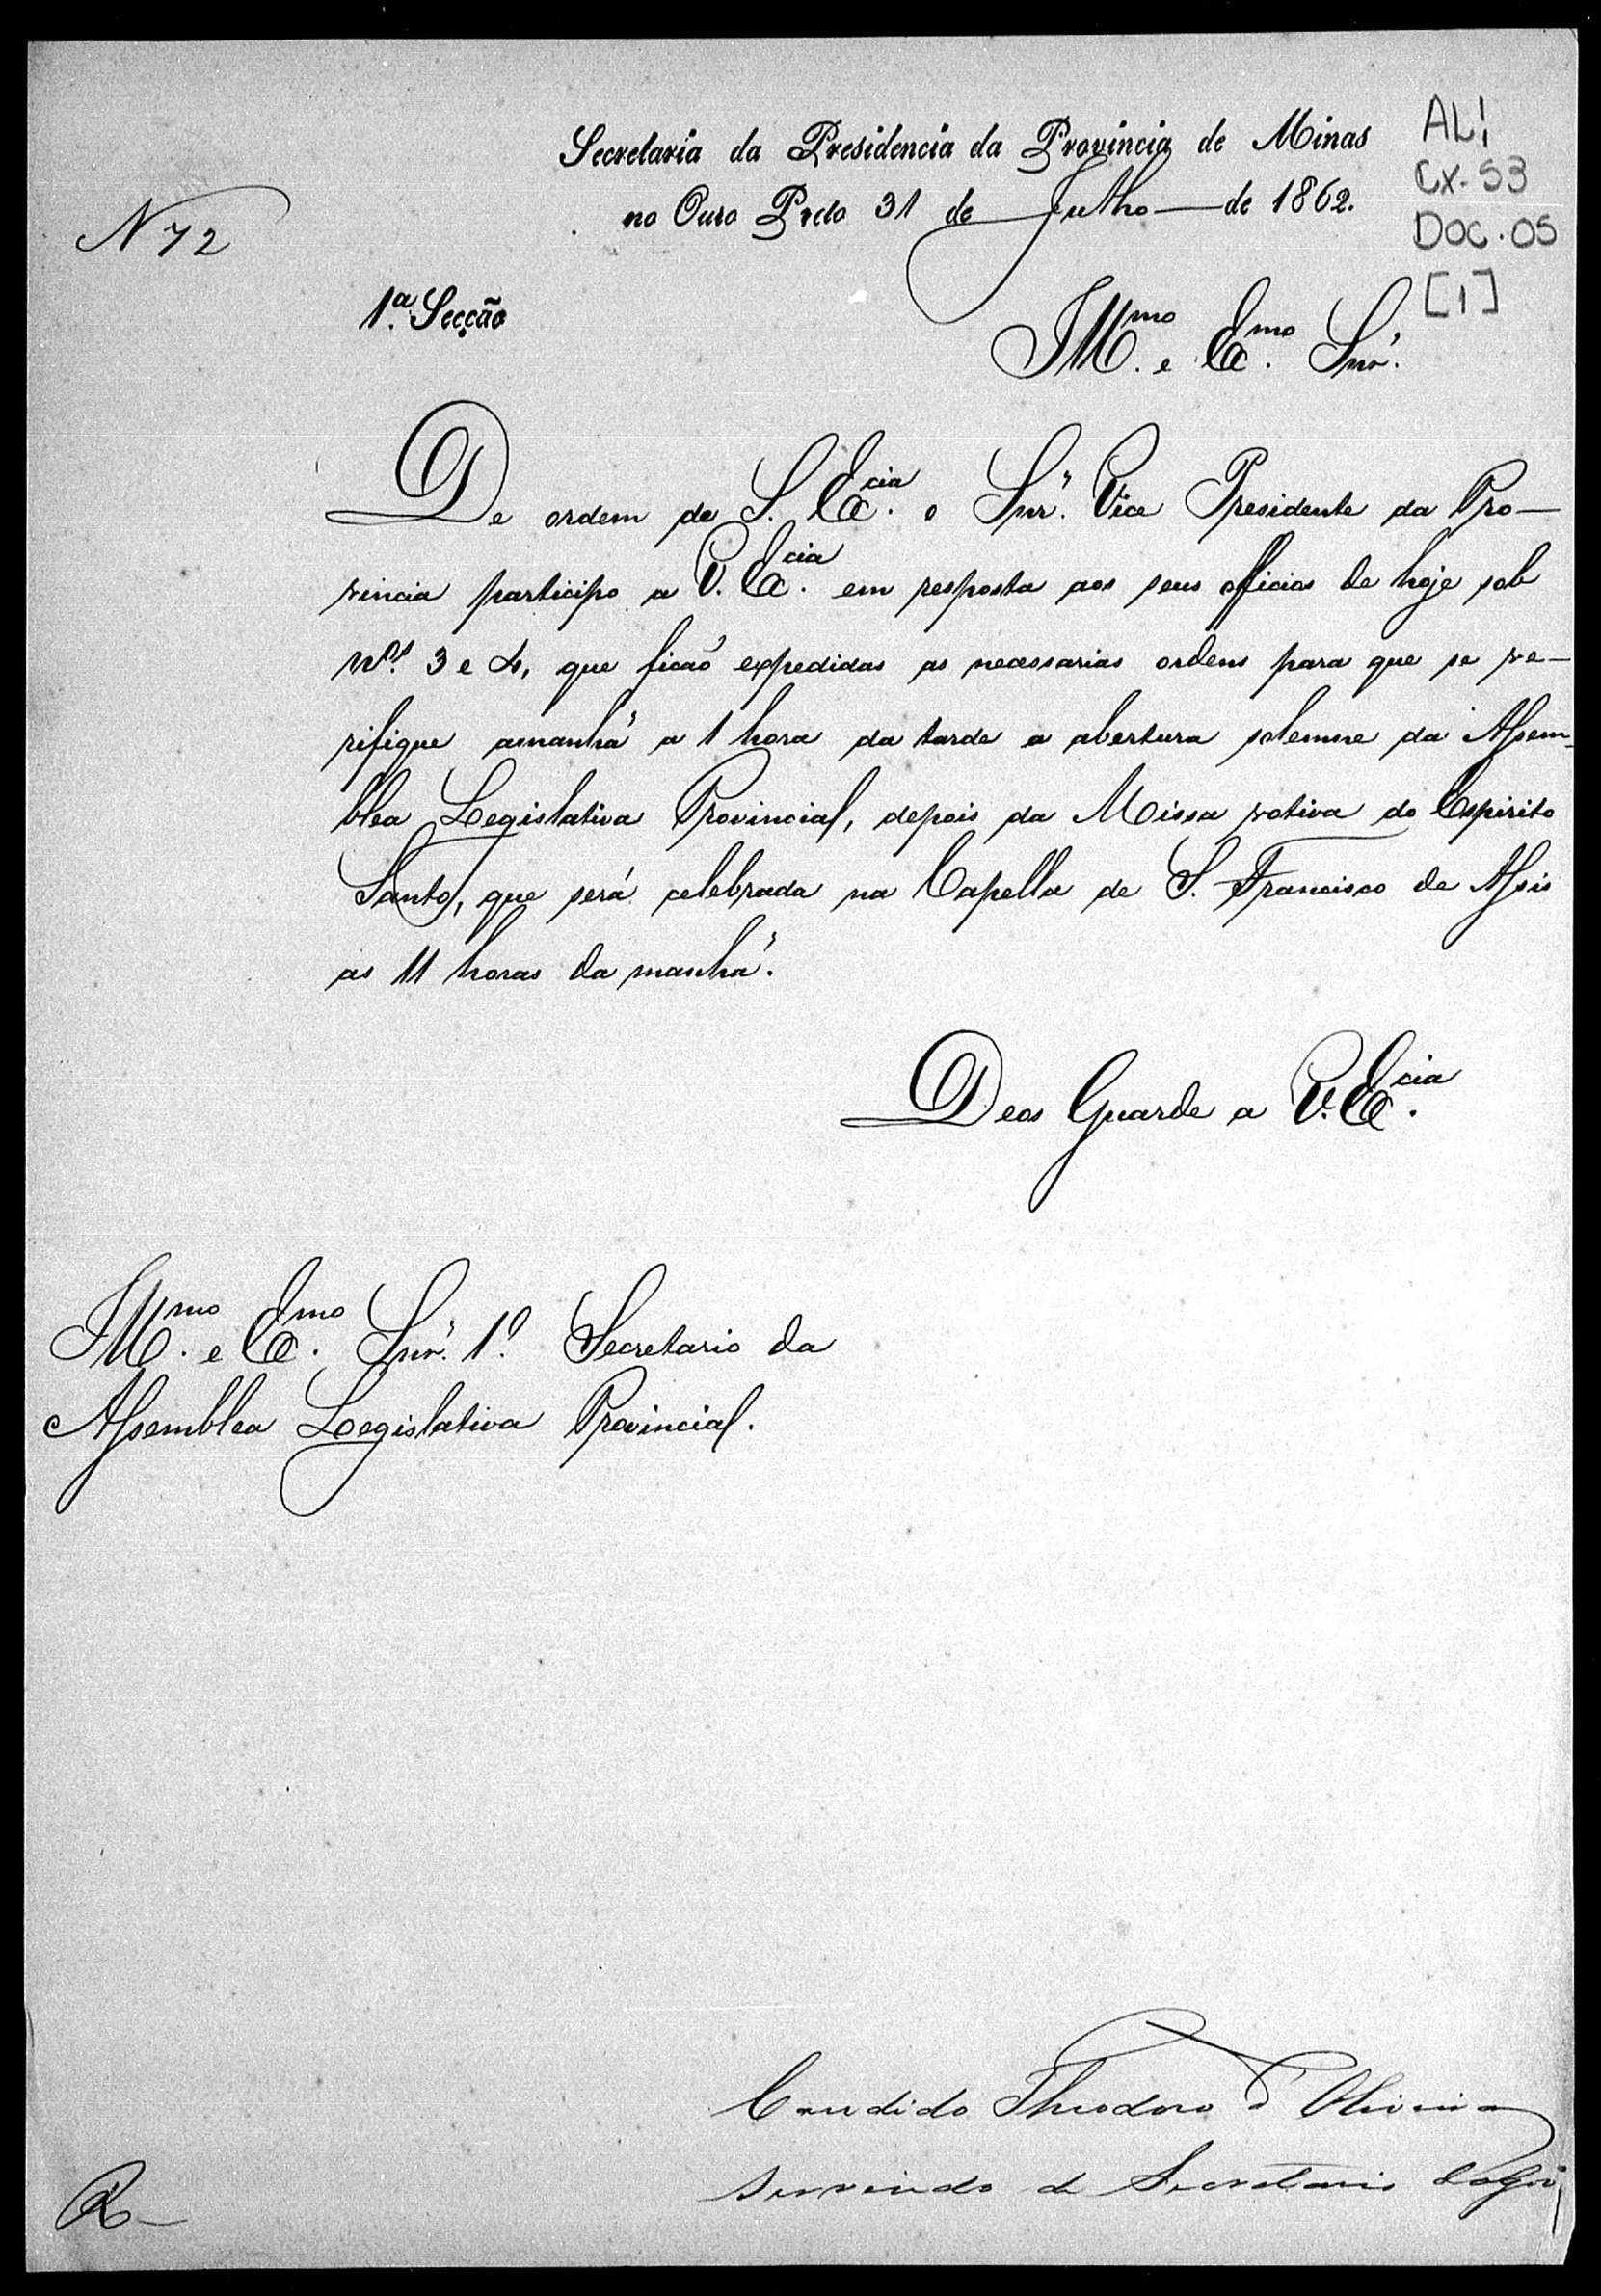 Secretaria da Presidencia da Provincia de Minas
no Ouro Preto 31 de Julho de 1862.
AL1
CX-53
DOC.05
[1]
N 72
1.ª Secção
Ill.mo e Ex.mo Snr.
De ordem de S. Ex.cia o Snr. Vice Presidente da Pro-
vincia participo a V. Ex.cia em resposta aos seus officios de hoje sob
N.os 3 e 4, que ficão expedidas as necessarias ordens para que se ve-
rifique amanhã a 1 hora da tarde a abertura solemne da Assem-
blea Legislativa Provincial, depois da Missa votiva do Espirito
Santo, que será celebrada na Capella de S. Francisco de Assis
as 11 horas da manhã.
Deos Guarde a V. Ex.cia
Ill.mo e Ex.mo Snr. 1.º Secretario da
Assemblea Legislativa Provincial.
Candido Theodoro d'Oliveira
servindo de Secretario